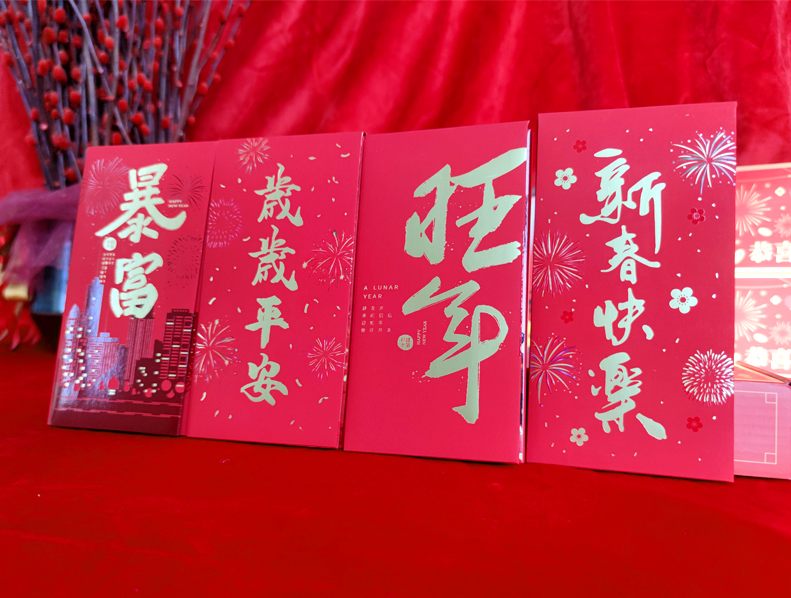 暴富
HAPPY
NEW YEAR
歲歲平安
旺年
A LUNAR
YEAR
新春快樂
恭喜
恭喜